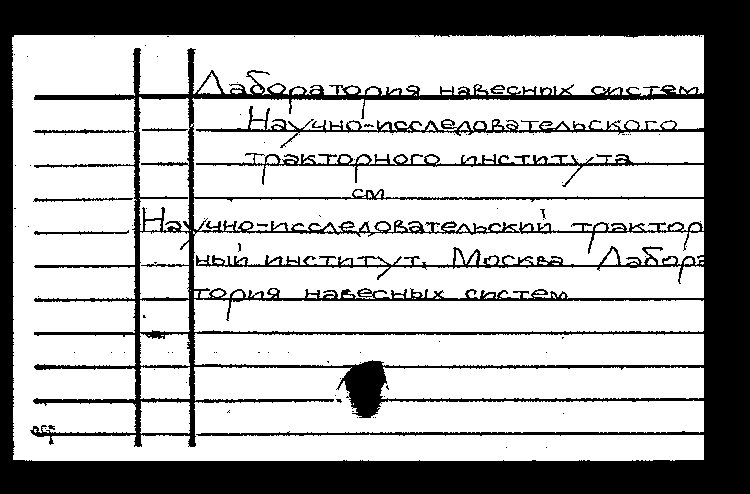 Лаборатория навесных систем
Научно-исследовательского
тракторного института
см
Научно-исследовательский трактор
ный институт. Москва. Лабора
тория навесных систем